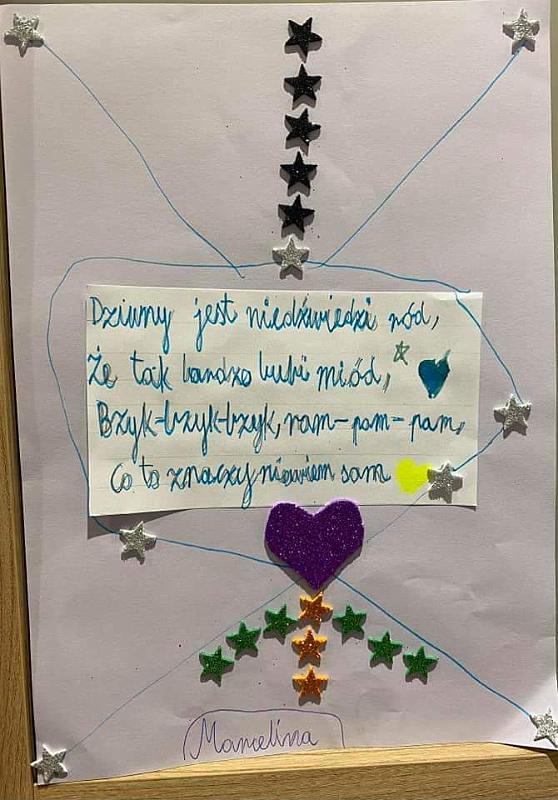 Dziwny jest niedźwiedzi ród,
Że tak bardzo lubi miód,
Bzyk-bzyk-bzyk, ram-pam-pam,
Co to znaczy niewiem sam
Marcelina